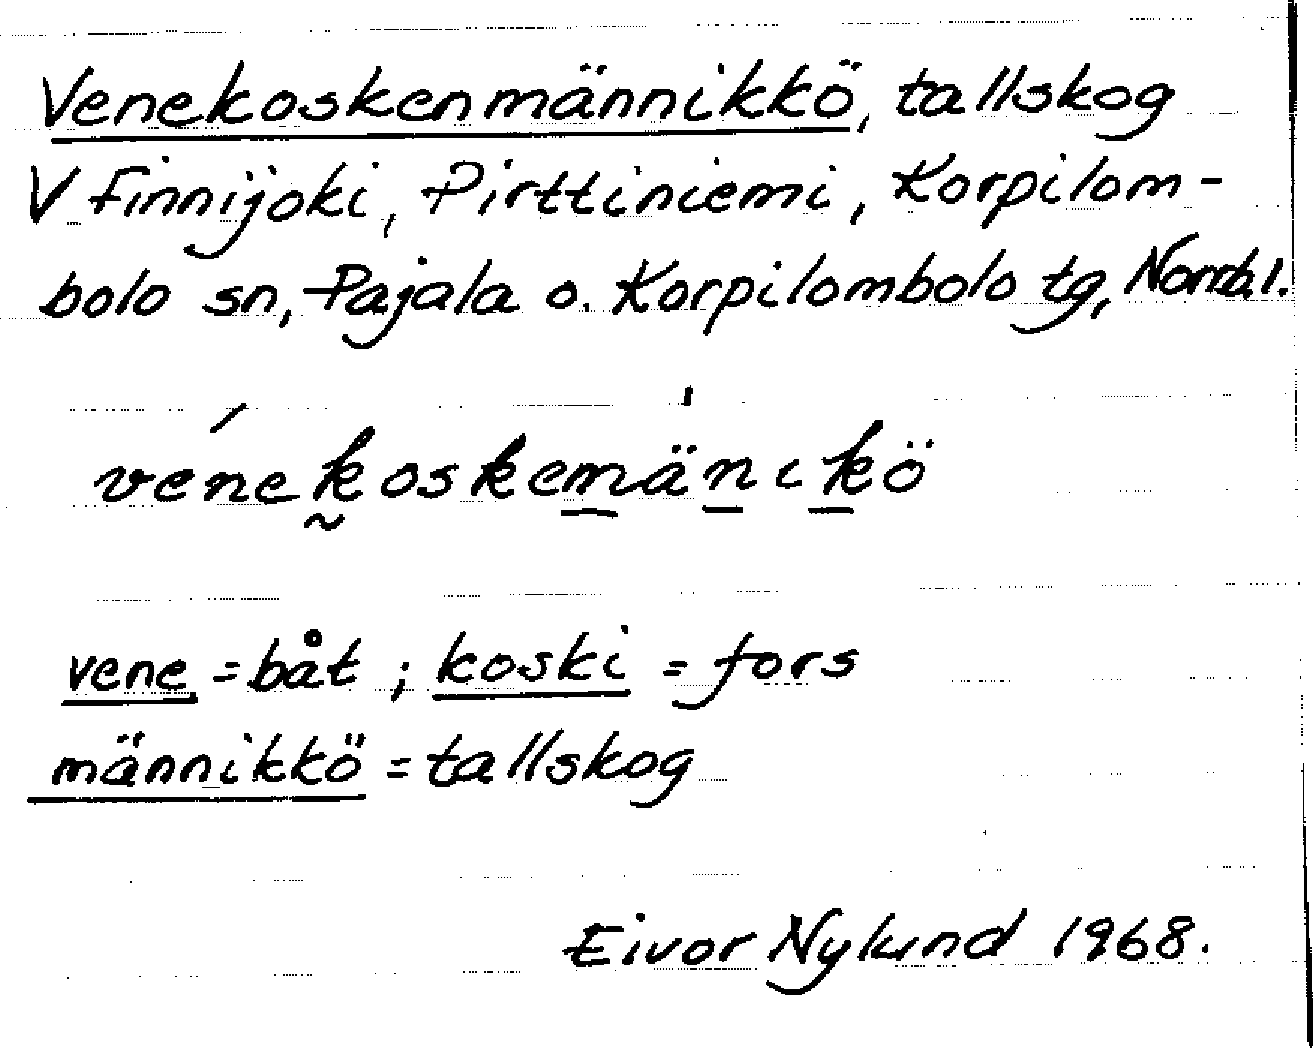 Venekoskenmännikkö, tallskog
V Finnijoki, Pirttiniemi, Korpilom-
bolo sn, Pajala o. Korpilombolo tg, Norrb.l.
vénekoskemänikö
vene = båt ; koski = fors
männikkö = tallskog
Eivor Nylund 1968.